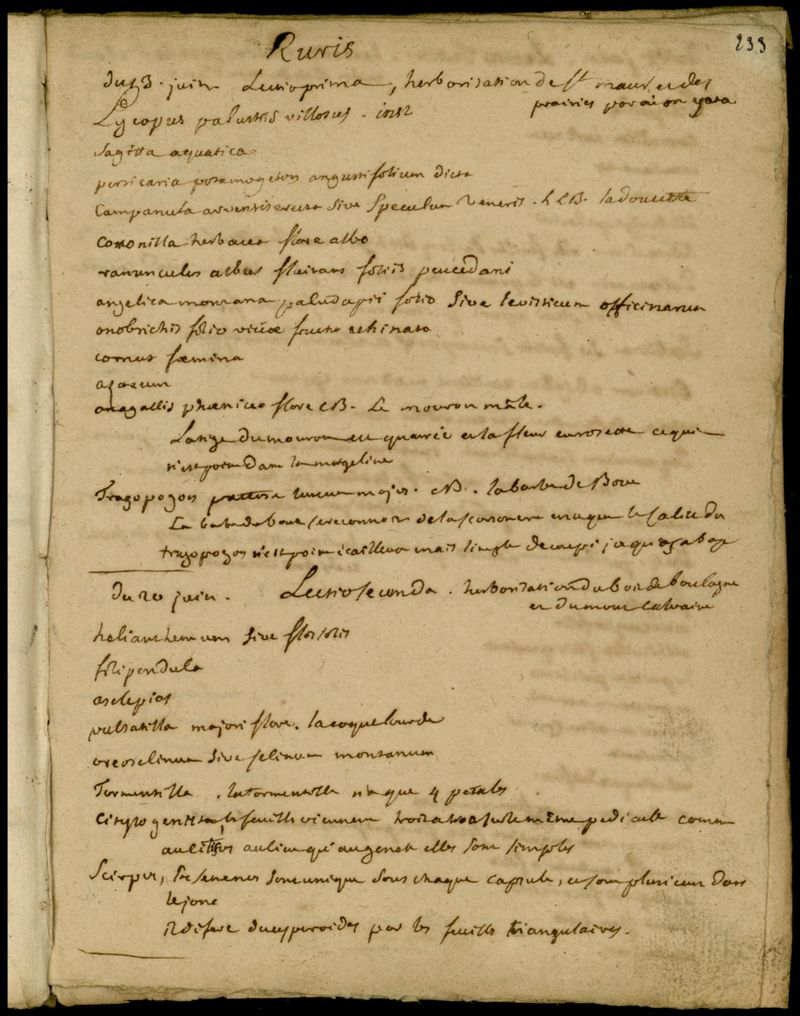 233
Ruris
du 13. juin Lectio prima, herborisation de st maur et des
prairies par
Lycopus palustris villosus. inst
Sagitta aquatica
persicaria potamogeton angustifolium dicta
Campanula arvensis erecta sive Speculum Veneris. L CB. la doucette
coronilla herbacea flore albo
ranunculus albus fluitans foliis peucedani
angelica montana paludapii folio sive levisticum officinarum
onobrichis folio viciæ fructu echinato
cornus fœmina
asarum
anagallis phœniceo flore CB. Le mouron mâle.
La tige du mouron est quarrée et la fleur en rosette ce qui
n'est point dans la morgeline
Tragopogon luteum majus. CB. la barbe de Bouc
La barbe de bouc se reconnoit de la scorsonere en ce que le calice du
tragopogon n'est point écailleux mais simple decoupé jusqu'à la base
du 20 juin. Lectio secunda. herborisation du bois de boulogne
et du mont calvaire
helianthemum sive flos solis
filipendula
asclepias
pulsatilla majori flore. la coquelourde
oreoselinum sive selinum montanum
Tormentilla. la tormentille n'a que 4 petales
Citysogenista les feuilles viennent trois a trois sur le même pedicule comme
au citise au lieu qu'au genet elles sont simples
Scirpus, les semences sont unique sous chaque capsule, et sont plusieurs dans
le jonc
il difere du cyperoides par les feuilles triangulaires.